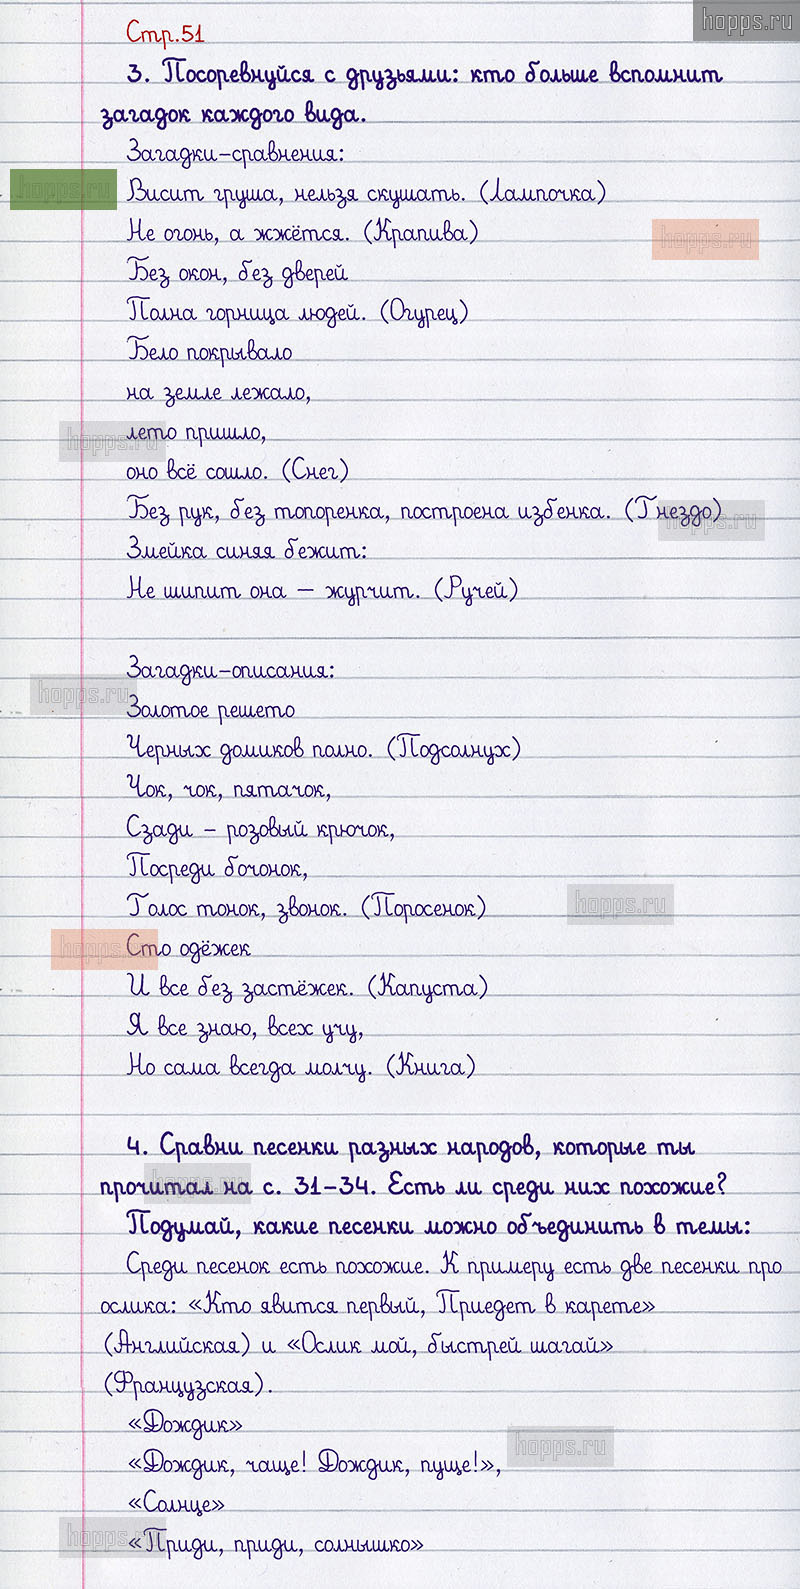 hopps.ru
Стр.51
3. Посоревнуйся с друзьями: кто больше вспомнит
загадок каждого вида.
Загадки-сравнения:
hopps.ru
Висит груша, нельзя скушать. (Лампочка)
Не огонь, а жжётся. (Крапива)
hopps.ru
Без окон, без дверей
Полна горница людей. (Огурец)
Бело покрывало
на земле лежало,
hopps.ru
лето пришло,
оно всё сошло. (Снег)
Без рук, без топоренка, построена избенка. (Гнездо)
hopps.ru
Змейка синяя бежит:
Не шипит она – журчит. (Ручей)
Загадки-описания:
hopps.ru
Золотое решето
Черных домиков полно. (Подсолнух)
Чок, чок, пятачок,
Сзади – розовый крючок,
Посреди бочонок,
Голос тонок, звонок. (Поросенок)
hopps.ru
hopps.ru
Сто одёжек
И все без застёжек. (Капуста)
Я все знаю, всех учу,
Но сама всегда молчу. (Книга)
4. Сравни песенки разных народов, которые ты
прочитал на с. 31-34. Есть ли среди них похожие?
hopps.ru
Подумай, какие песенки можно объединить в темы:
Среди песенок есть похожие. К примеру есть две песенки про
ослика: «Кто явится первый, Приедет в карете»
(Английская) и «Ослик мой, быстрей шагай»
(Французская).
«Дождик»
hopps.ru
«Дождик, чаще! Дождик, пуще!»,
«Солнце»
hopps.ru
«Приди, приди, солнышко»